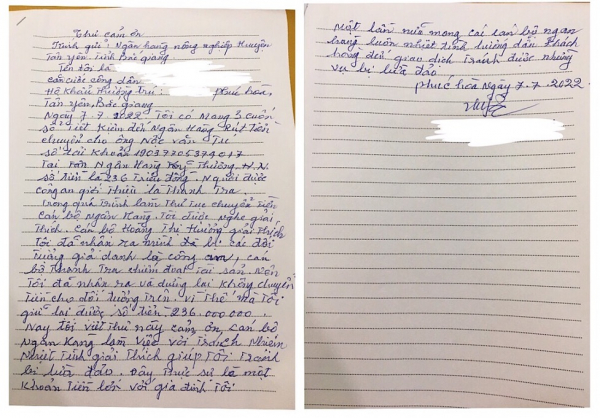 Thư cảm ơn
Kính gửi: Ngân hàng nông nghiệp Huyện
Tân yên Tỉnh Bắc giang
Tên tôi là
căn cước công dân
Hộ khẩu thường trú: phúc hoà,
Tân yên, Bắc giang
Ngày 7.7.2022 Tôi có Mang 3 cuốn
sổ Tiết Kiệm đến Ngân Hàng Rút Tiền
chuyển cho ông Nộc văn Tu
số tài khoản 19037705379017
Tại Ngân Hàng Kỹ Thương H.N.
số tiền là 236 Triệu đồng Người được
công an giới thiệu là Thanh Tra.
Trong quá Trình làm Thủ Tục chuyển Tiền
Cán bộ Ngân Hàng Tôi được nghe giải
Thích. Cán bộ Hoàng Thị Hường giải Thích
Tôi đã nhận ra mình đã bị các đối
Tượng giả danh là công an, cán
bộ Thanh Tra chiếm đoạt Tài sản. Nên
Tôi đã nhận ra và dừng lại không chuyển
Tiền cho đối tượng Trên. Vì Thế mà Tôi
giữ lại được số tiền 236.000.000.
Nay tôi viết Thư này cảm ơn, cán bộ
Ngân Hàng làm việc với Trách Nhiệm
Nhiệt Tình giải Thích giúp Tôi Tránh
bị lừa đảo. Đây Thực sự là một
Khoản Tiền lớn với gia đình Tôi
Một lần nữa mong các cán bộ ngân
hàng luôn nhiệt tình hướng dẫn khách
hàng đến giao dịch Tránh được những
vụ bị lừa đảo
phúc hoà Ngày 7.7.2022